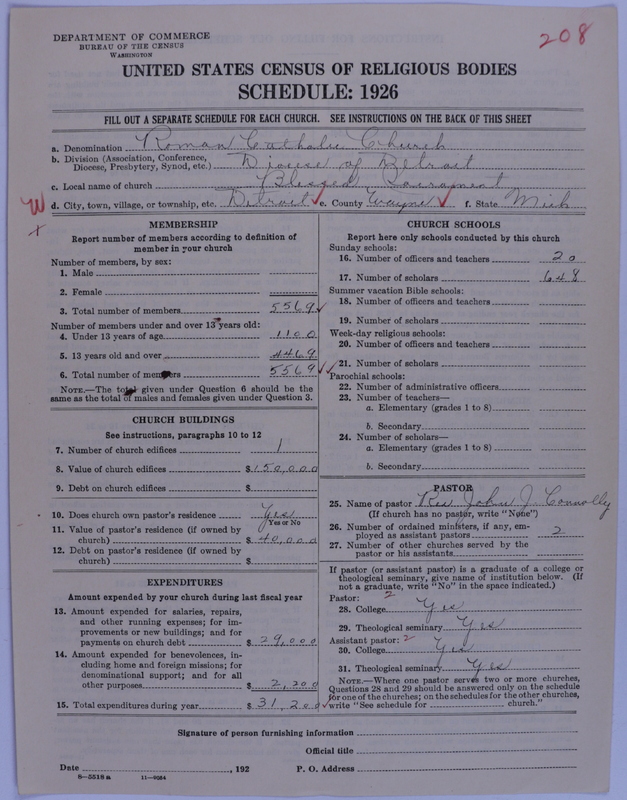 208
DEPARTMENT OF COMMERCE
BUREAU OF THE CENSUS
WASHINGTON
UNITED STATES CENSUS OF RELIGIOUS BODIES
SCHEDULE: 1926
FILL OUT A SEPARATE SCHEDULE FOR EACH CHURCH. SEE INSTRUCTIONS ON THE BACK OF THIS SHEET
a. Denomination Roman Catholic Church
b. Division (Association, Conference,
Diocese, Presbytery, Synod, etc.) Diocese of Detroit
c. Local name of church Blessed Sacrament
W x
d. City, town, village, or township, etc. Detroit ✓ e. County Wayne ✓ f. State Mich
MEMBERSHIP
Report number of members according to definition of
member in your church
Number of members, by sex:
1. Male
2. Female
3. Total number of members 5569 ✓
Number of members under and over 13 years old:
4. Under 13 years of age 1100
5. 13 years old and over 4469
6. Total number of members 5569 ✓✓
NOTE.—The total given under Question 6 should be
same as the total of males and females given under Question 3.
CHURCH BUILDINGS
See instructions, paragraphs 10 to 12
7. Number of church edifices 1
8. Value of church edifices $150,000
9. Debt on church edifices $
10. Does church own pastor's residence? Yes
Yes or No
11. Value of pastor's residence (if owned by
church) $ 40,000
12. Debt on pastor's residence (if owned by
church) $
EXPENDITURES
Amount expended by your church during last fiscal year
13. Amount expended for salaries, repairs,
and other running expenses; for im-
provements or new buildings; and for
payments on church debt $ 29,000
14. Amount expended for benevolences, in-
cluding home and foreign missions; for
denominational support; and for all
other purposes $ 2,200
15. Total expenditures during year $ 31,200 ✓
CHURCH SCHOOLS
Report here only schools conducted by this church
Sunday schools:
16. Number of officers and teachers 20
17. Number of scholars 648
Summer vacation Bible schools:
18. Number of officers and teachers
19. Number of scholars
Week-day religious schools:
20. Number of officers and teachers
21. Number of scholars
Parochial schools:
22. Number of administrative officers
23. Number of teachers—
a. Elementary (grades 1 to 8)
b. Secondary
24. Number of scholars—
a. Elementary (grades 1 to 8)
b. Secondary
PASTOR
25. Name of pastor Rev John J. Connolly
(If church has no pastor, write "None")
26. Number of ordained ministers, if any, em-
ployed as assistant pastors 2
27. Number of other churches served by the
pastor or his assistants
If pastor (or assistant pastor) is a graduate of a college or
theological seminary, give name of institution below. (If
not a graduate, write "No" in the space indicated.)
Pastor: 2
28. College Yes
29. Theological seminary Yes
Assistant pastor: 2
30. College Yes
31. Theological seminary Yes
NOTE.—Where one pastor serves two or more churches,
Questions 28 and 29 should be answered only on the schedule
for one of the churches; on the schedules for the other churches,
write "See schedule for church."
Signature of person furnishing information
Official title
Date , 192 P. O. Address
8—5518 a 11—9034